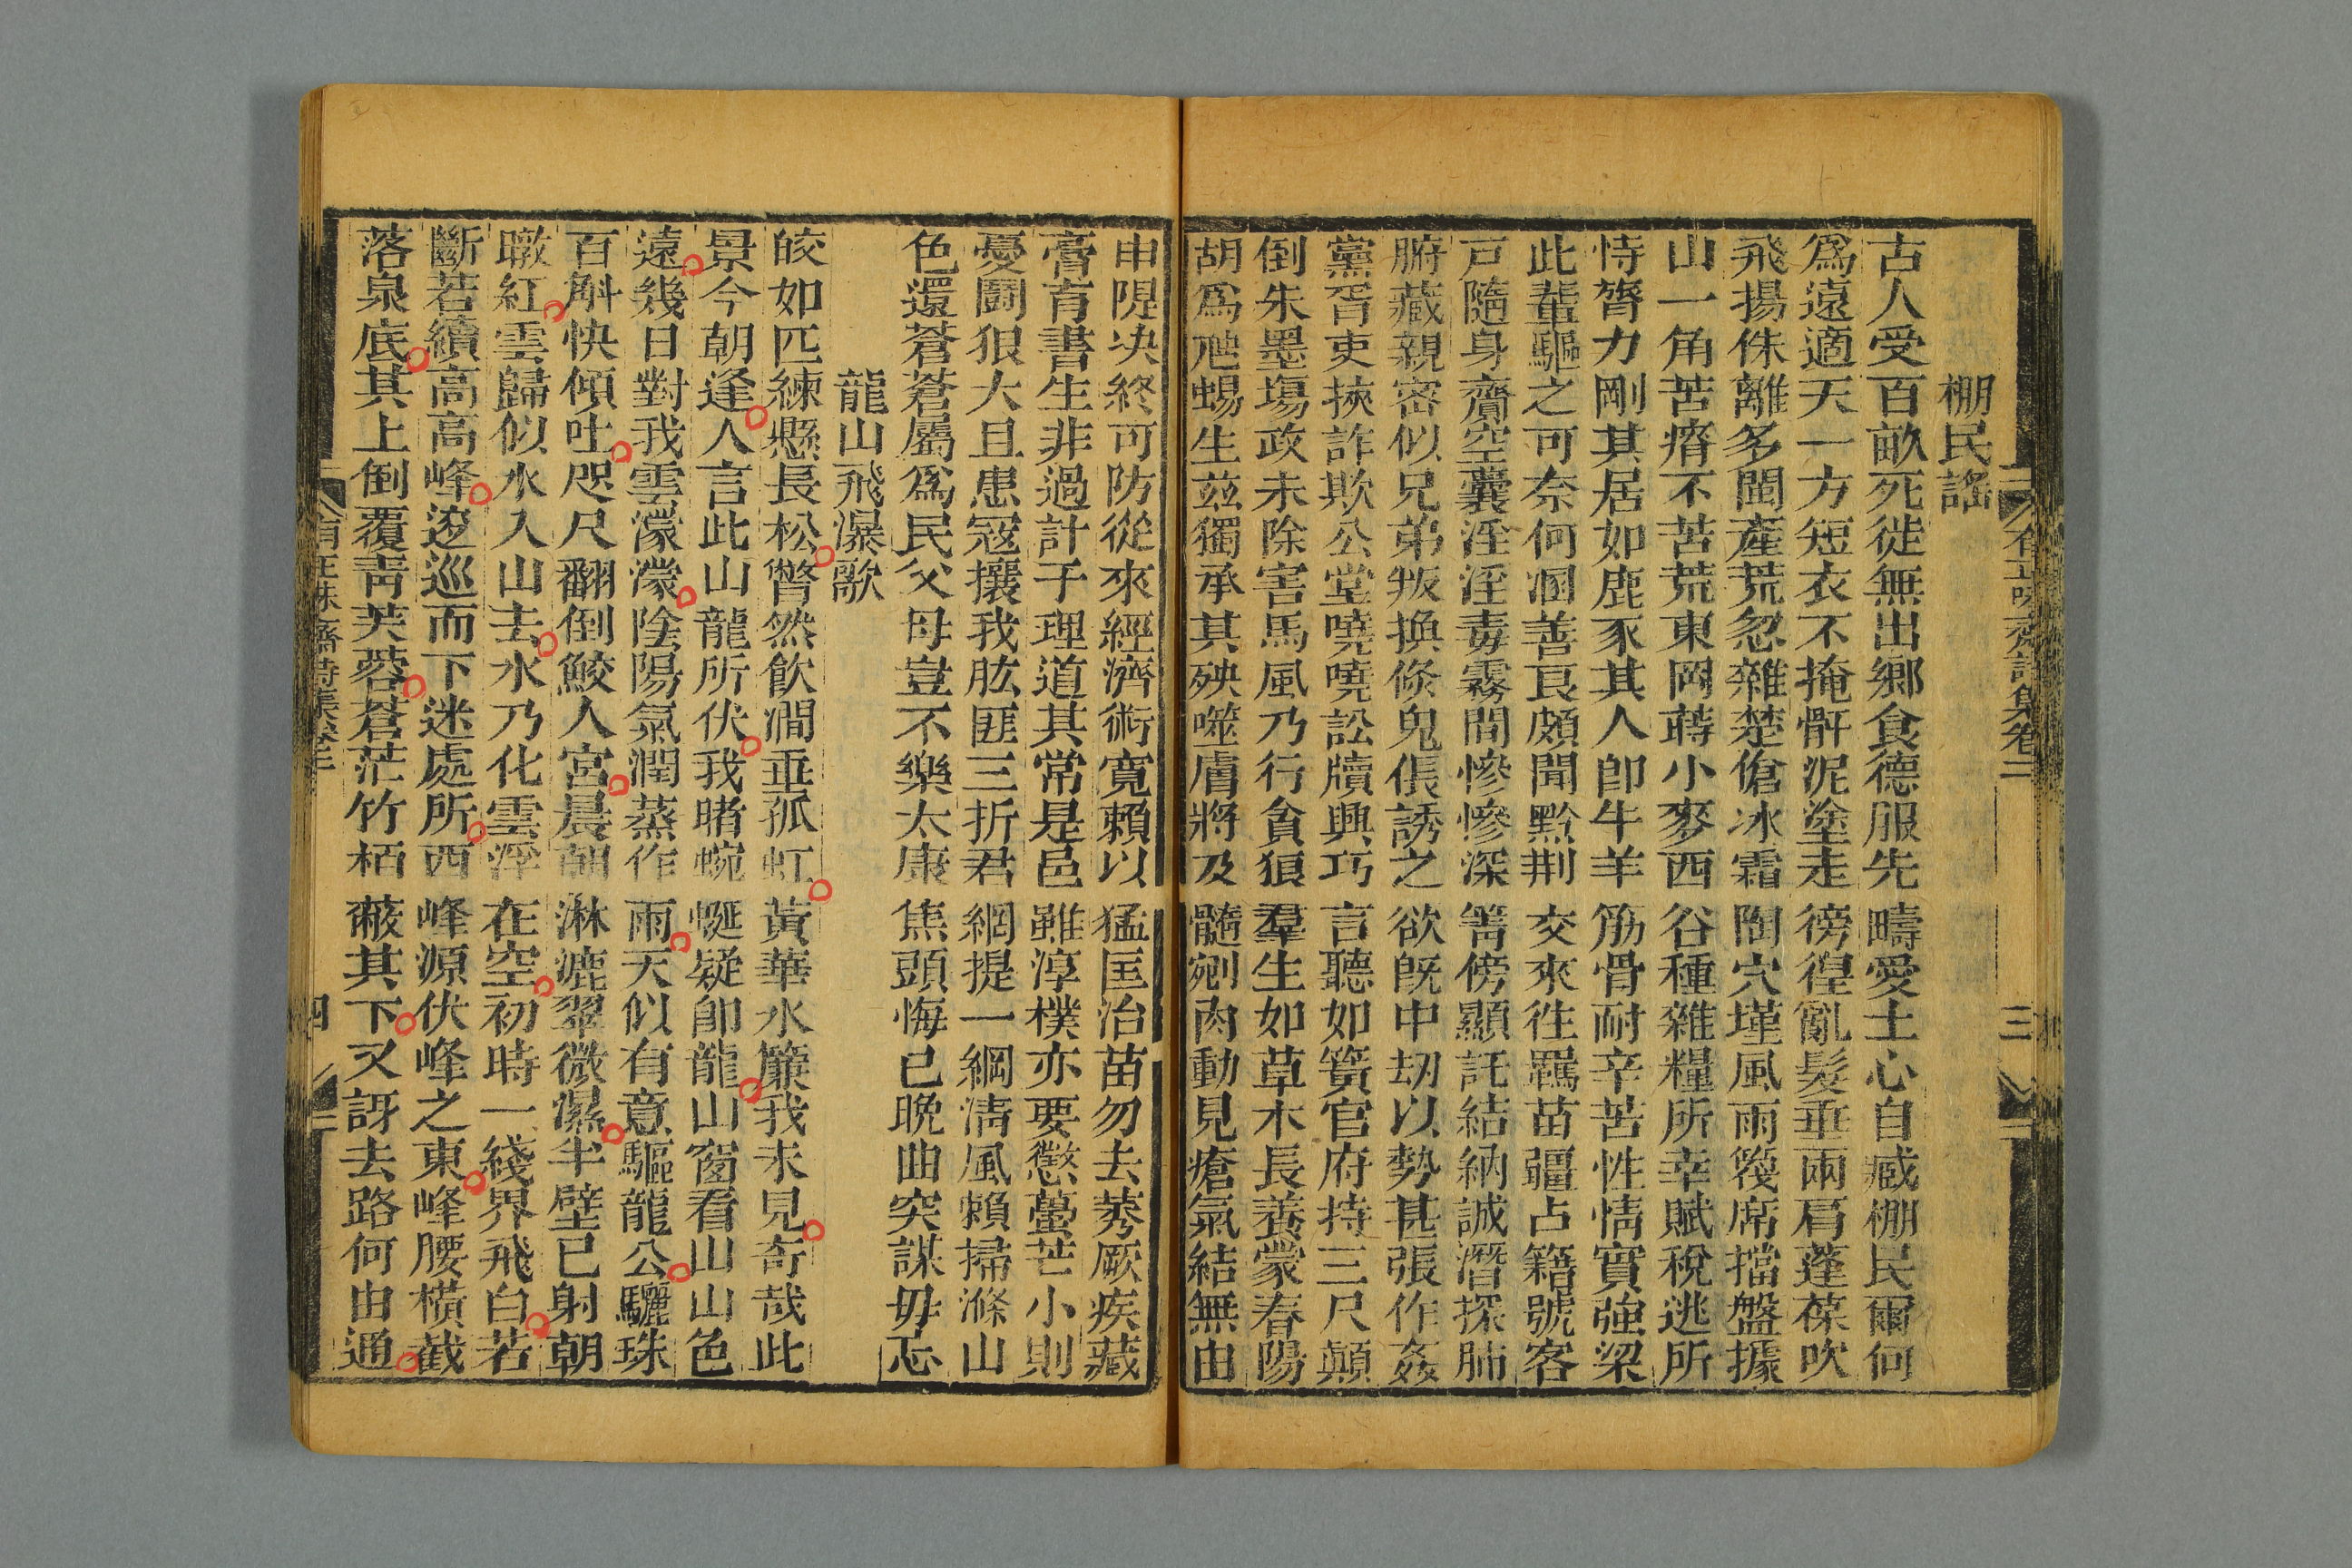 棚民謠
古人受百畝死徙無出鄉食德服先疇愛土心自臧棚民爾何
爲遠適天一方短衣不掩骭泥塗走徬徨亂髮垂兩肩蓬葆吹
飛揚侏離多閩產荒忽雜楚傖冰霜陶穴墐風雨籧席擋盤據
山一角苦瘠不苦荒東岡蒔小麥西谷種雜糧所幸賦稅逃所
恃膂力剛其居如鹿豕其人卽牛羊筋骨耐辛苦性情實強梁
此輩驅之可奈何溷善良頗聞黔荆交來往羈苗疆占籍號客
戸隨身齎空囊淫淫毒霧間慘慘深箐傍顯託結納誠潛探肺
腑藏親密似兄弟叛換倐鬼倀誘之欲旣中刼以勢甚張作姦
黨胥吏挾詐欺公堂嘵嘵訟牘興巧言聽如簧官府持三尺顛
倒朱墨塲政未除害馬風乃行貪狼羣生如草木長養蒙春陽
胡爲虺蜴生茲獨承其殃噬膚將及髓剜肉動見瘡氣結無由
申隄决終可防從來經濟術寬賴以猛匡治苗勿去莠厥疾藏
膏肓書生非過計子理道其常是邑雖淳樸亦要懲蠆芒小則
憂鬪狠大且患冦攘我肱匪三折君網提一綱淸風賴掃滌山
色還蒼蒼屬爲民父母豈不樂太康焦頭悔已晚曲突謀毋忘
龍山飛瀑歌
皎如匹練懸長松瞥然飮澗垂孤虹黃華水簾我未見奇哉此
景今朝逢人言此山龍所伏我睹蜿蜒疑卽龍山窗看山山色
遠幾日對我雲濛濛陰陽氣潤蒸作雨天似有意驅龍公驪珠
百斛快傾吐咫尺翻倒鮫人宮晨朝淋漉翠微濕半壁已射朝
暾紅雲歸似水入山去水乃化雲浮在空初時一綫界飛白若
斷若續高高峰逡巡而下迷處所西峰源伏峰之東峰腰橫截
落泉底其上倒覆靑芙蓉蒼茫竹栢蔽其下又訝去路何由通